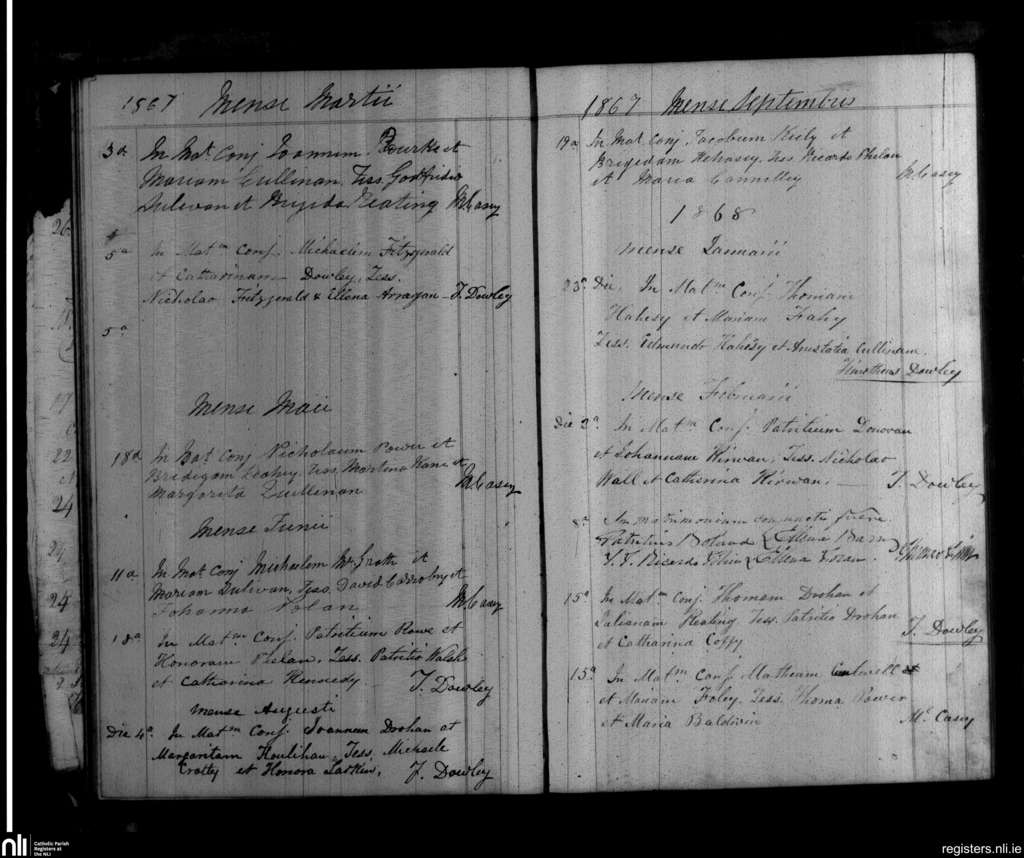 1867 Mense Martii
3a In Mat. Conj Joannem Bourke et
Mariam Cullinan, Tess. Godfrido
Sulivan et Brigida Keating M. Casey
5a In Matm Conj. Michaelem Fitzgerald
et Catharinam Dowley, Tess.
Nicholao Fitzgerald & Ellena Arragan – T. Dowley
5a
Mense Maii
18a In Mat Conj Nicholaum Power et
Bridigam Leahy, Tess Martino Kane et
Margarita Quillinan M. Casey
Mense Junii
11a In Mat Conj Michaelem McGrath et
Mariam Sulivan, Tess. David et
Johanna Nolan M. Casey
18a In Matm Conj. Patritium Rowe et
Honoram Phelan, Tess. Patritio Walsh
et Catharina Kennedy. T. Dowley
Mense Augusti
Die 4a. In Matm Conj. Joannem Drohan et
Margaritam Houlihan, Tess. Michaele
et Honora T. Dowley
1867 Mense Septembris
19a In Mat. Conj Jacobum Kiely et
Brigidam Tess Ricardo Phelan
et Maria Connolly M. Casey
1868
Mense Januarii
23a Die, In Matm Conj. Thomam
Hahesy et Mariam Fahey
Tess. Edmundo Hahesy et Anastatia Cullinan.
Timotheus Dowley
Mense Februarii
Die 2a. In Matm Conj. Patritium Donovan
et Johannam Kirwan, Tess. Nicholao
Wall et Catherina Kirwan. — T. Dowley
8a In matrimonium conjuncti fuere
Patritius Boland & Ellena
T.T. Ricardo Tobin & Ellena
15a In Matm Conj. Thomam Drohan et
Julianam Keating Tess. Patritio Drohan
et Catharina Coffy T. Dowley
15a In Matm Conj. Matheum
et Mariam Foley, Tess. Thoma Power
et Maria Baldwin Mc Casey
nli
Catholic Parish
Registers at
the NLI
registers.nli.ie